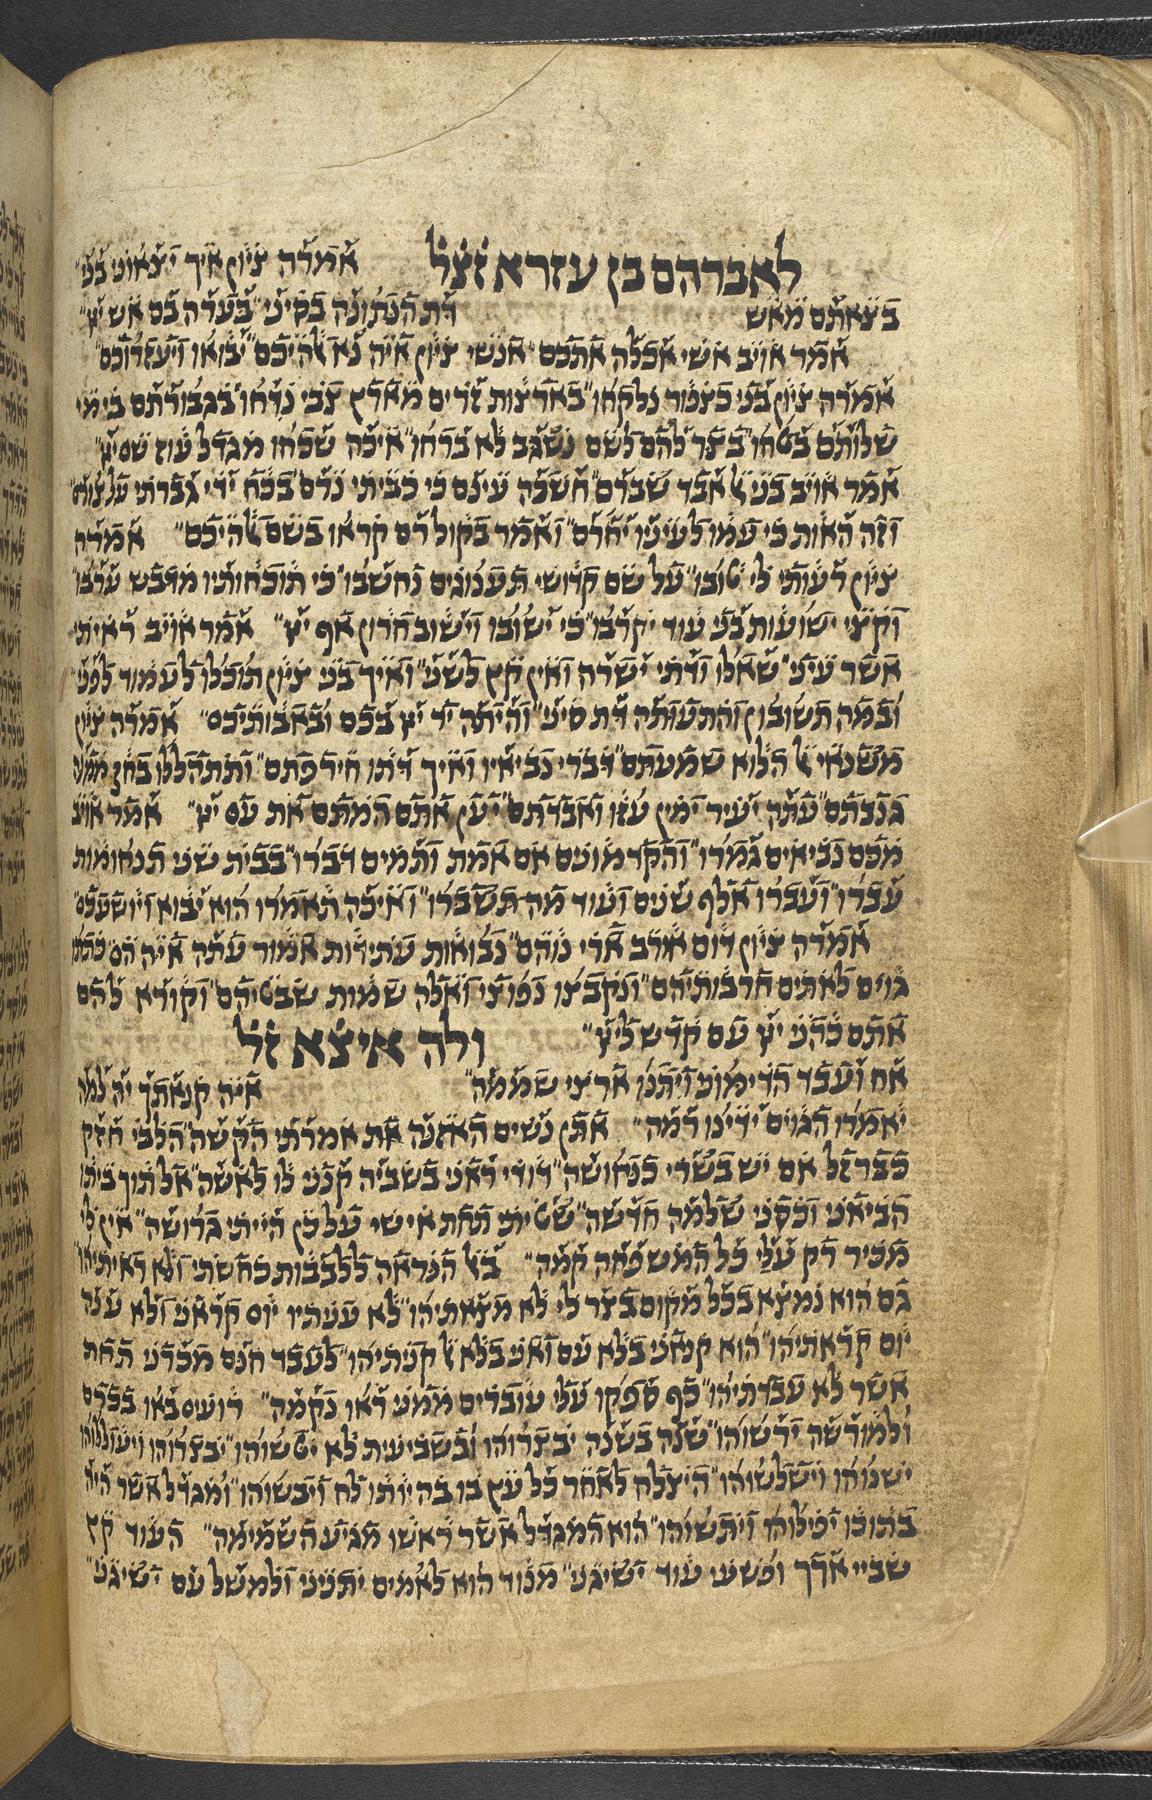 לאברהם בן עזרא זצל אמרה ציון איך יצאוני בני
בצאתם מאש דת הנתונה בסיני בערה בם אש ייי
אמר אויב אשי אכלה אתכם אנשי ציון איה נא אלהיכם יבואו ויעזרוכם
אמרה ציון בני כצפור נלקחו בארצות זרים מארץ צבי נדחו בגבורתם בימי
שלותם בטחו בצר להם לשם נשגב לא ברחו איכה שכחו מגדל עוז שם ייי
אמר אויב בני אל אבד שברם חשכה עינם כי כביתי נרם בכח ידי גברתי על צורם
וזה האות כי עמו לעיניו יחרם ואמר בקול רם קראו בשם אלהיכם אמרה
ציון רעותי לי טובו על שם קדושי תענוגים נחשבו כי תוכחותיו מדבש ערבו
וקצי ישועות בני עוד יקרבו כי ישובו וישוב חרון אף ייי אמר אויב ראיתי
אשר עיני שאלו ודתי ישרה ואין קץ לשני ואיך בני ציון תוכלו לעמוד לפני
ובמה תשובון והתעותה דת סיני והיתה יד ייי בכם ובאבותיכם אמרה ציון
משנאי אל הלוא שמעתם דברי נביאיו ואיך דתו חירפתם ותתהללו בחזון
גנבתם עתה יעיר ימין עזו ואבדתם יען אתם המתם את עם ייי אמר אויב
מכם נביאים גמרו והקדמונים אם אמת ותמים דברו בבית שני תנחומות
עברו ועברו אלף שנים ועוד מה תשברו ואיכה תאמרו הוא יבוא ויושעכם
אמרה ציון דום אויב אדי נוהם נבואות עתידות אמור עתה איה הם כתתו
גוים לאתים חרבותיהם ונקבצו נפוצי ואלה שמות שבטיהם וקורא להם
אתם כהני ייי עם קדש לייי ולה איצא זל
אח ועבד הדימוני ויתנו ארצי שממה איה קנאתך יה למה
יאמרו הגוים ידינו רמה אתן נשים האזנה את אמרתי הקשה הלבי חזק
כברזל אם יש בשרי כנחושה דודי ראני בשביה קנני לו לאשה אל תוך ביתו
הביאני וכסני שלמה חדשה שטיתי תחת אישי על כן הייתי גרושה אין לי
מכיר רק עלי כל המשפחה קמה בצל הנראה ללבבות כחשתי ולא ראיתיהו
גם הוא נמצא בכל מקום בצר לי לא מצאתיהו לא עניתיו יום קראני ולא ענה
יום קראתיהו הוא קנאני בלא עם ואני בלא אל קניתיהו לעבד חנם מכרני תחת
אשר לא עבדתיהו כף ספקו עלי עוברים ממני ראו נקמה רועים באו בכרם
ולמורשה ירשוהו שנה בשנה יבצרוהו ובשביעית לא יטשוהו יבצרוהו ויעוללוהו
ישנוהו וישלשוהו היצלח לאחר כל עץ בו בהיותו לח ויבשוהו ומגדל אשר היה
בתוכו יפילוהו ויתשוהו הוא המגדל אשר ראשו מגיע השמימה העוד קץ
שביי ארך ופשעי עוד ישיגני מנוד הוא לאמים יתנני ולמשל עם ישיגני